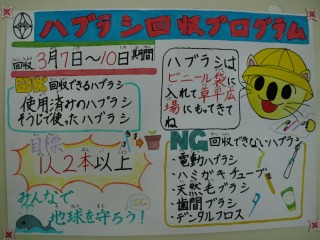 ハブラシ回収プログラム
回収 3月7日〜10日 期間
OK 回収できるハブラシ
使用済みのハブラシ
そうじで使ったハブラシ
ハブラシは
ビニール袋に
入れて草平広
場にもってきて
ね
目標
1人2本以上
みんなで
地球を守ろう!
NG 回収できないハブラシ
・電動ハブラシ
・ハミガキチューブ
・天然毛ブラシ
・歯間ブラシ
・デンタルフロス